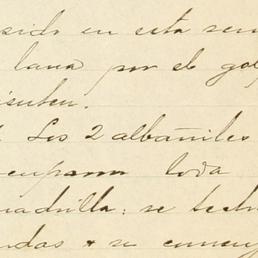 sido en esta sem
lana por el gol
isenten.
Los 2 albañiles
cuparon toda
uadrilla; se tech
ndas + se comen